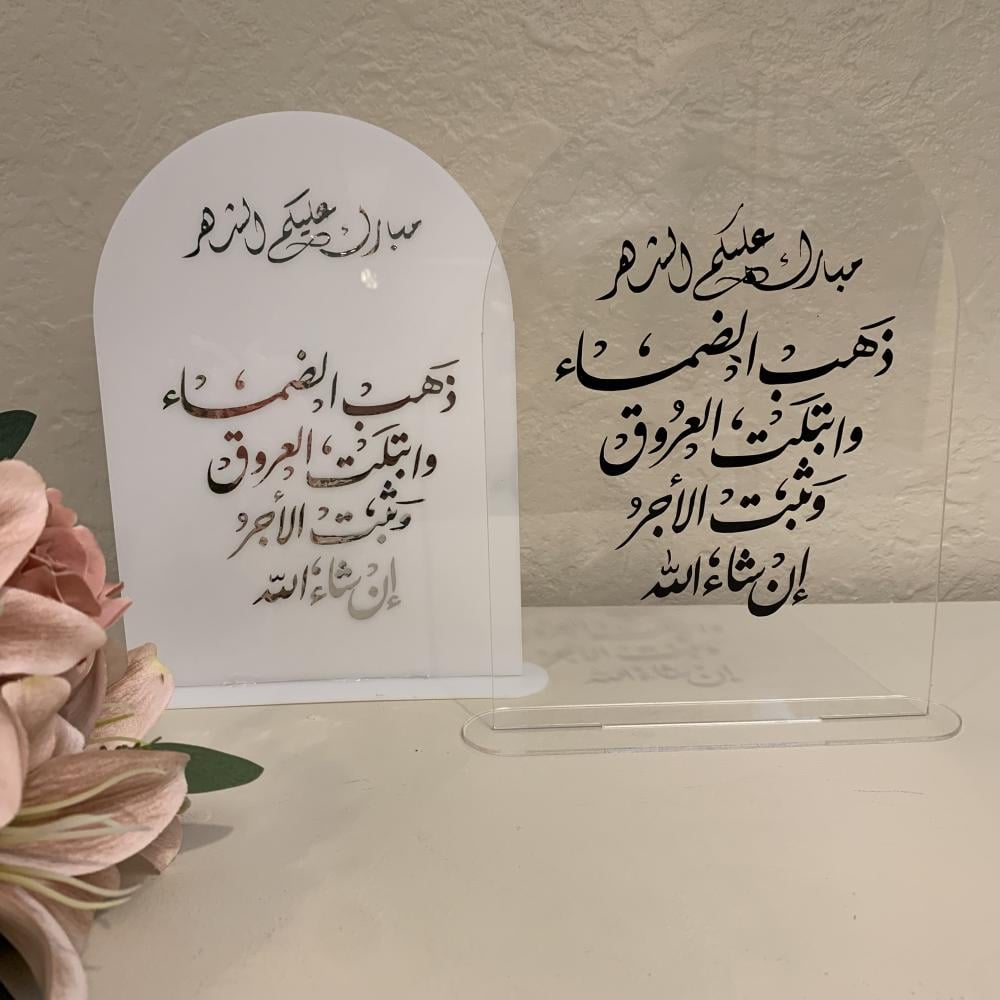 مبارك عليكم الشهر
ذَهَب الضماء
وابتَلَت العروق
وَثبت الأجرُ
إنْ شاءَ اللّه
مبارك عليكم الشهر
ذَهَب الضماء
وابتَلَت العرُوق
وَثبَت الأجرُ
إنْ شاءَ اللّه